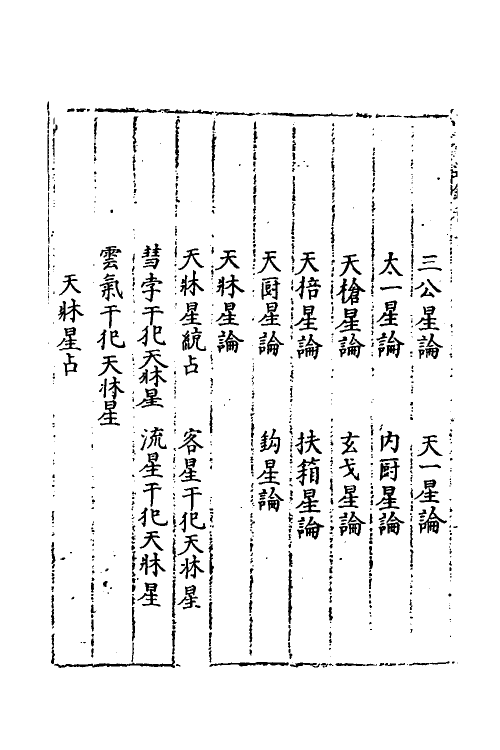 三公星論　天一星論
太一星論　內厨星論
天槍星論　玄戈星論
天棓星論　扶箱星論
天厨星論　鈎星論
天牀星論
天牀星綂占　客星干犯天牀星
彗孛干犯天牀星　流星干犯天牀星
雲氣干犯天牀星
天牀星占